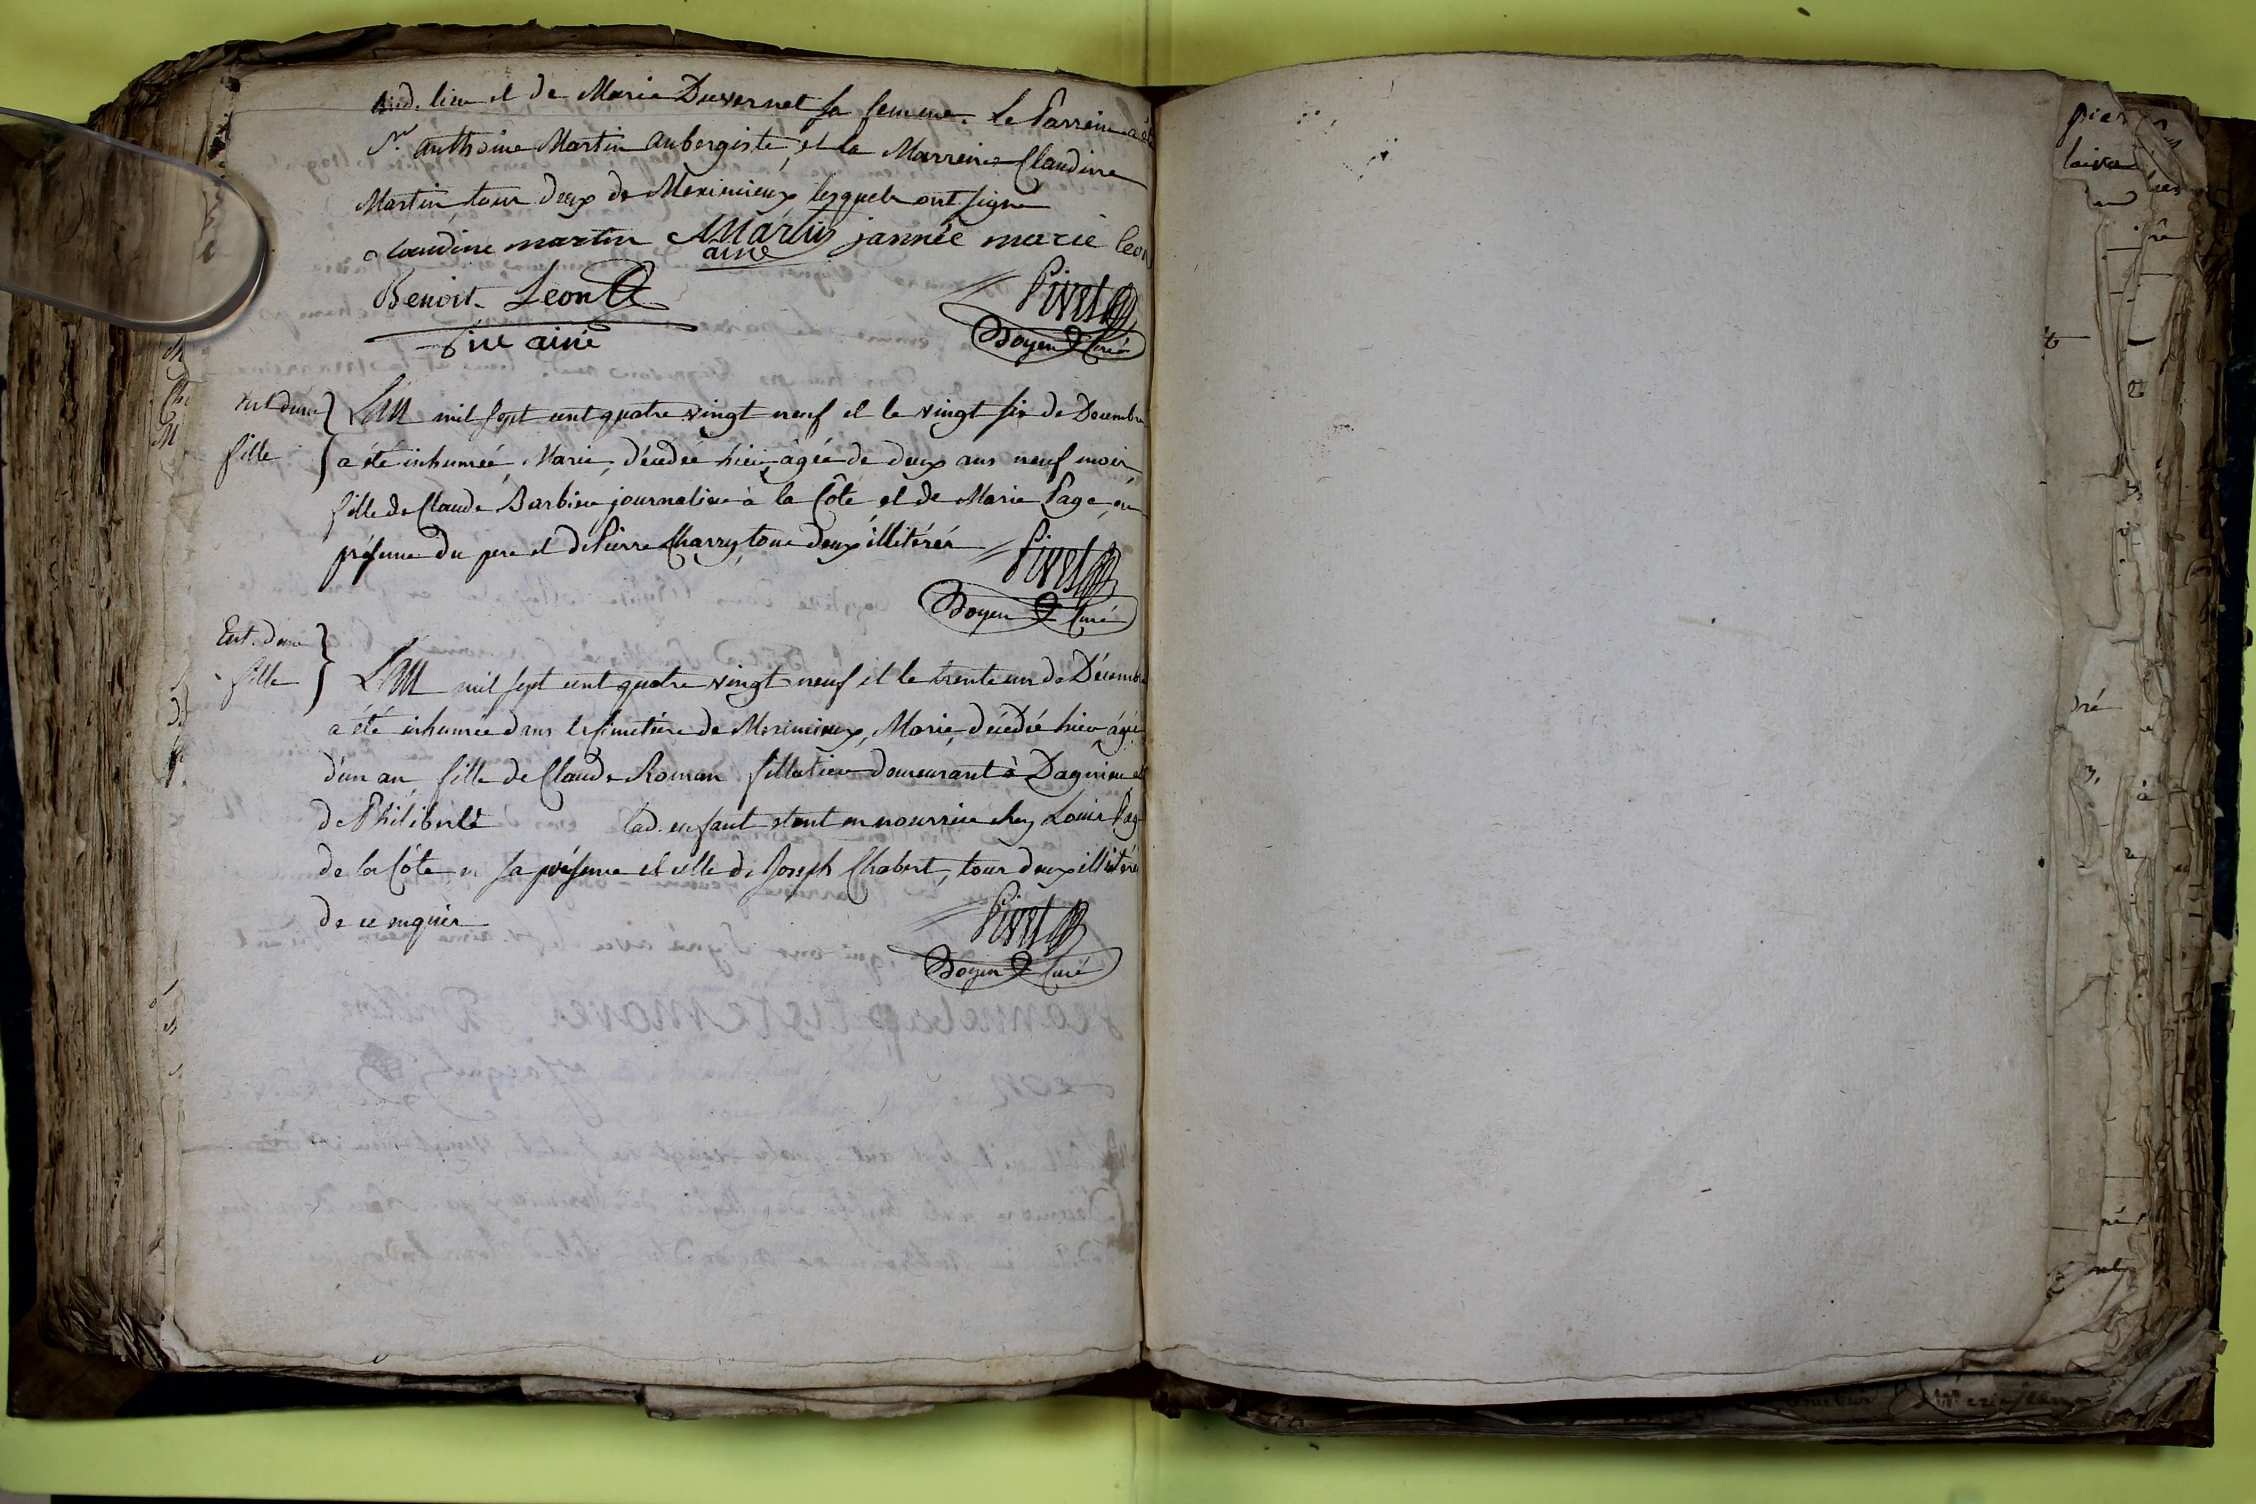 aud. lieu et de Marie Duvernet sa femme. Le Parrein a été
Sr. anthoine Martin aubergiste, et la Marreine Claudine
Martin tous deux de Meximieux lesquels ont signé
claudine martin AMartin jannée marie leon
ainé
Benoit Leon
pivet
père ainé
Doyen Curé
Ent. d'une
fille
L'an mil sept cent quatre vingt neuf et le vingt six de Décembre
a été inhumée, Marie, décédée hier, âgée de deux ans neuf mois
fille de Claude Barbier journalier à la Côte et de Marie Page, en
présence du pere et de Pierre Charry, tous deux illitérés
pivet
Doyen Curé
Ent. d'une
fille
L'an mil sept cent quatre vingt neuf et le trente un de Décembre
a été inhumée dans le cimetière de Meximieux, Marie, décédée hier âgée
d'un an, fille de Claude Roman fillatier demeurant à Dagnieu et
de Philiberte lad. enfant étant en nourrice chez Louis Page
de la Côte en sa présence et celle de Joseph Chabert, tous deux illitérés
de ce enquis
pivet
Doyen Curé